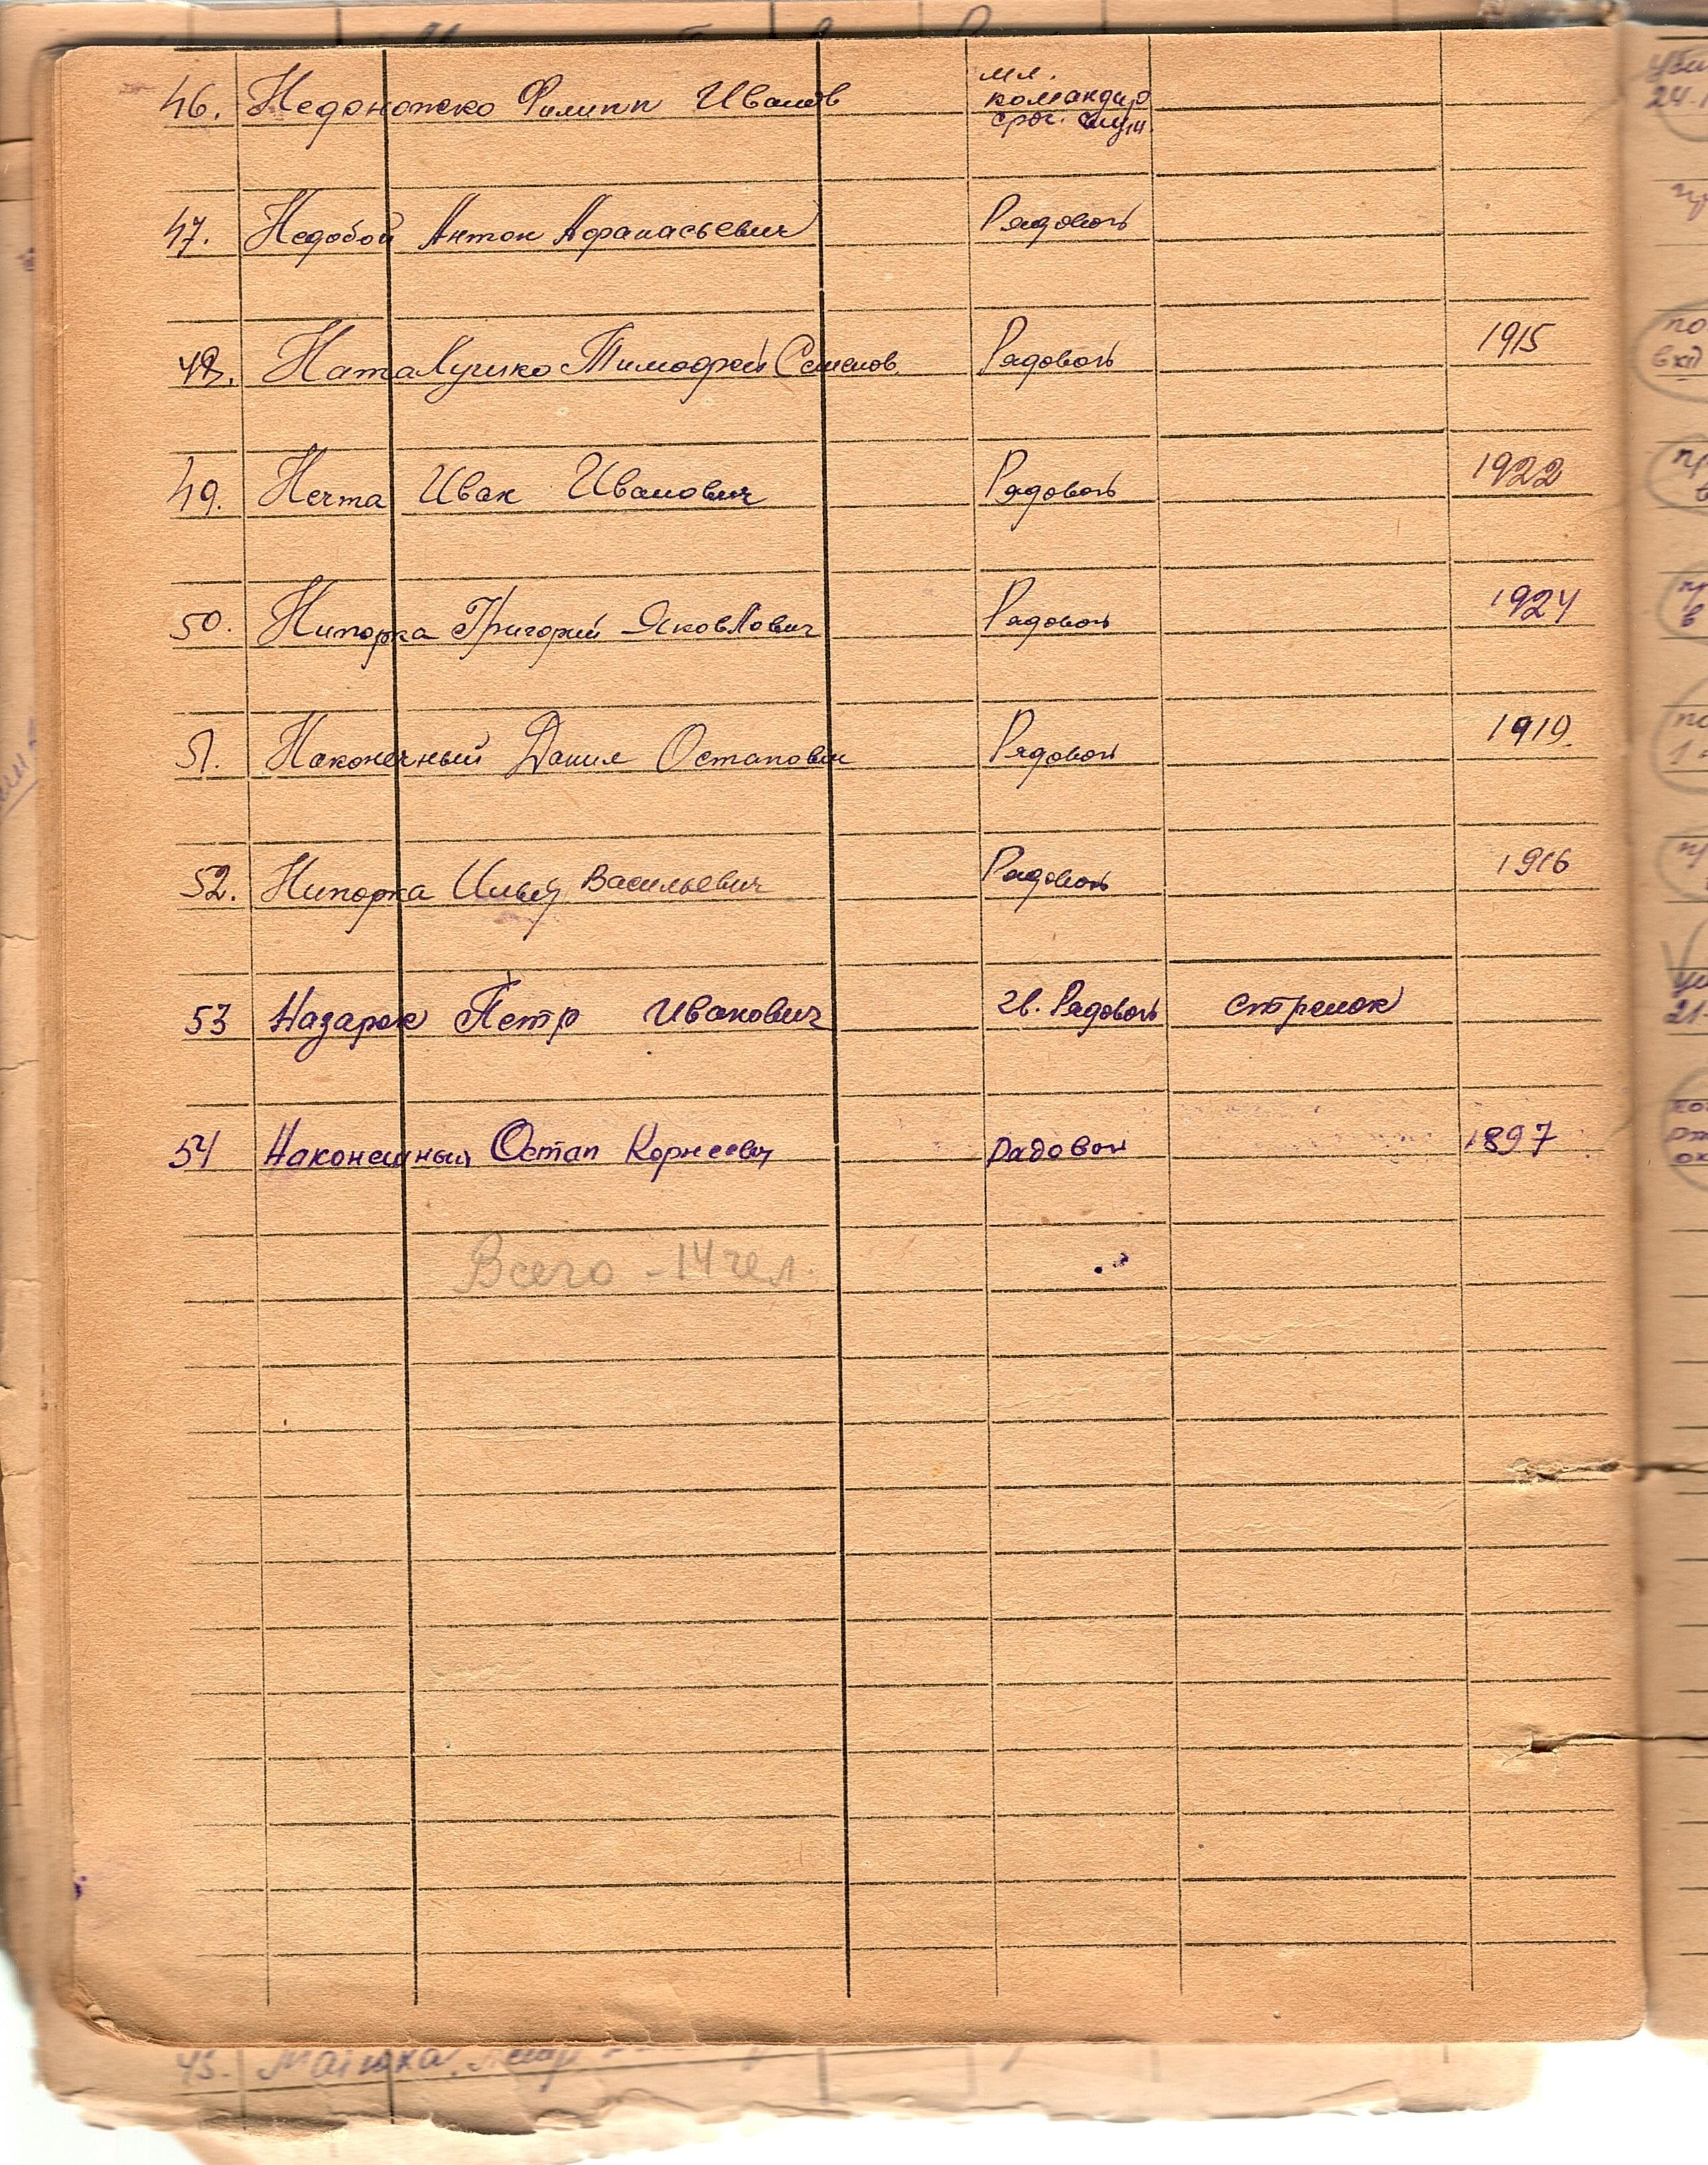 мл.
46. Недоножко Филипп Иванов командир
сроч. служ.
47. Недобой Антон Афанасьевич Рядовой
48. Наталушко Тимофей Семенов. Рядовой 1915
49. Нечта Иван Иванович Рядовой 1922
50. Нипорка Григорий Яковлович Рядовой 1924
51. Наконечный Данил Остапович Рядовой 1919.
52. Нипорка Илья Васильевич Рядовой 1916
53 Назарок Петр Иванович гв. Рядовой стрелок
54 Наконешный Остап Корнеевич рядовой 1897
Всего - 14 чел.
45.